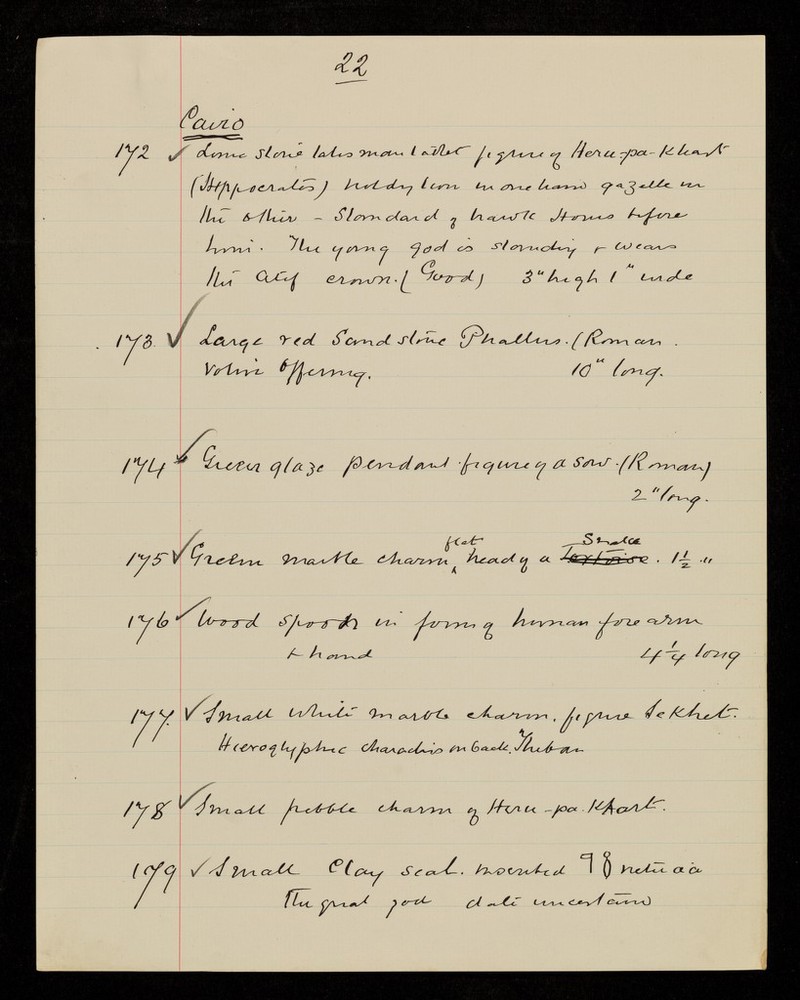 22
Cairo
172 ✓ Lime stone talismanic tablet figure of Heru-pa-Khart
(Harpocrates) holdg lion in one hand gazelle in
the other - Standard of hawk Horus before
him. The young god is standing + wears
the Atef crown. (Good) 3" high 1" wide
173 ✓ Large red Sandstone Phallus. (Roman.
Votive Offering. 10" long.
174 ✓ Green glaze pendant figure of a sow. (Roman)
2" long.
175 ✓ Green marble charm, flat head of a Tortoise Snake. 1½"
176 ✓ Wood spoon in form of human fore arm
+ hand 4¼ long
177. ✓ Small white marble charm. figure Sekhet.
Hieroglyphic characters on back. Theban
178 ✓ Small pebble charm of Heru-pa-Khart.
179 ✓ Small Clay seal. inscribed neter aa
The great god date uncertain